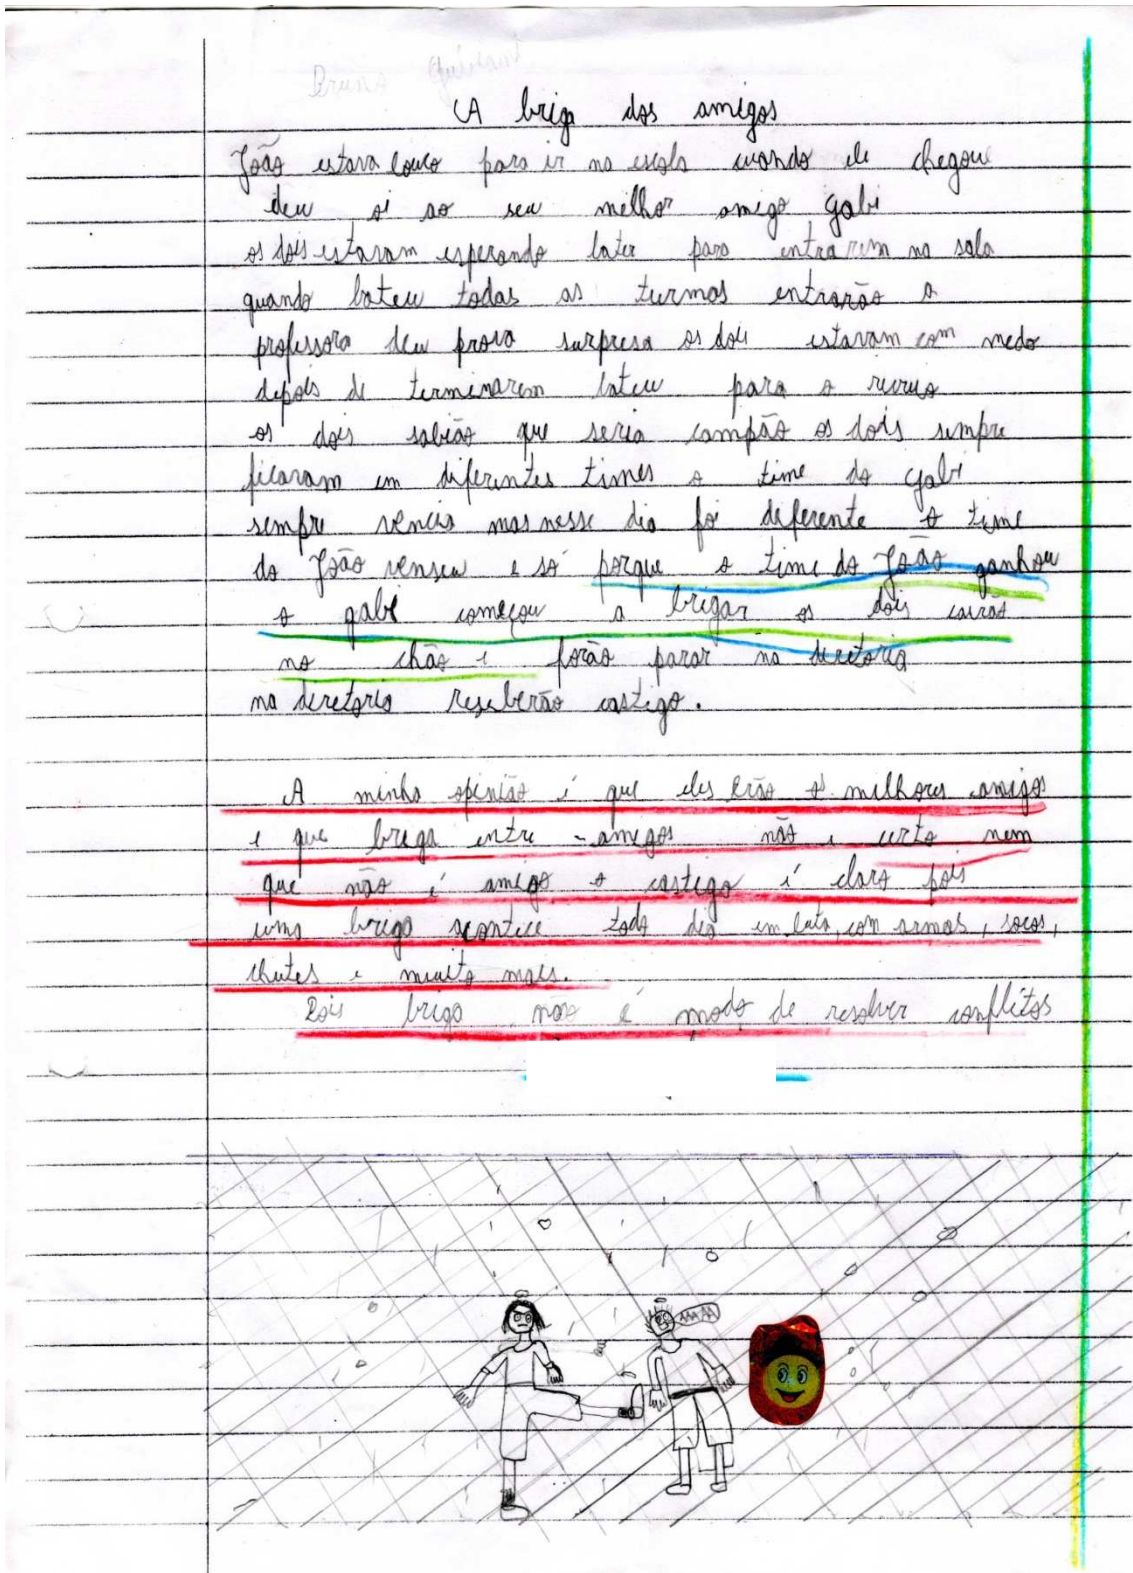 A briga dos amigos
João estava louco para ir na escola cuando ele chegou
deu oi ao seu melhor amigo gabi
os dois estavam esperando bater para entrarem na sala
quando bateu todas as turmas entrarão a
professora deu prova surpresa os dois estavam com medo
depois de terminarem bateu para o recreio
os dois sabião que seria campão os dois sempre
ficavam em diferentes times o time do gabi
sempre vencia mas nesse dia foi diferente o time
do João venseu e só porque o time do João ganhou
o gabi começou a brigar os dois cairão
no chão e forão parar na diretoria
na diretoria reseberão castigo.
A minha opinião é que eles erão os milhores amigos
e que briga entre amigos não e certo nem
que não é amigo o castigo é claro pois
uma briga acontece todo dia em luta, com armas, socos,
chutes e muito mais.
Pois briga não é modo de resolver conflitos
AAAAAA